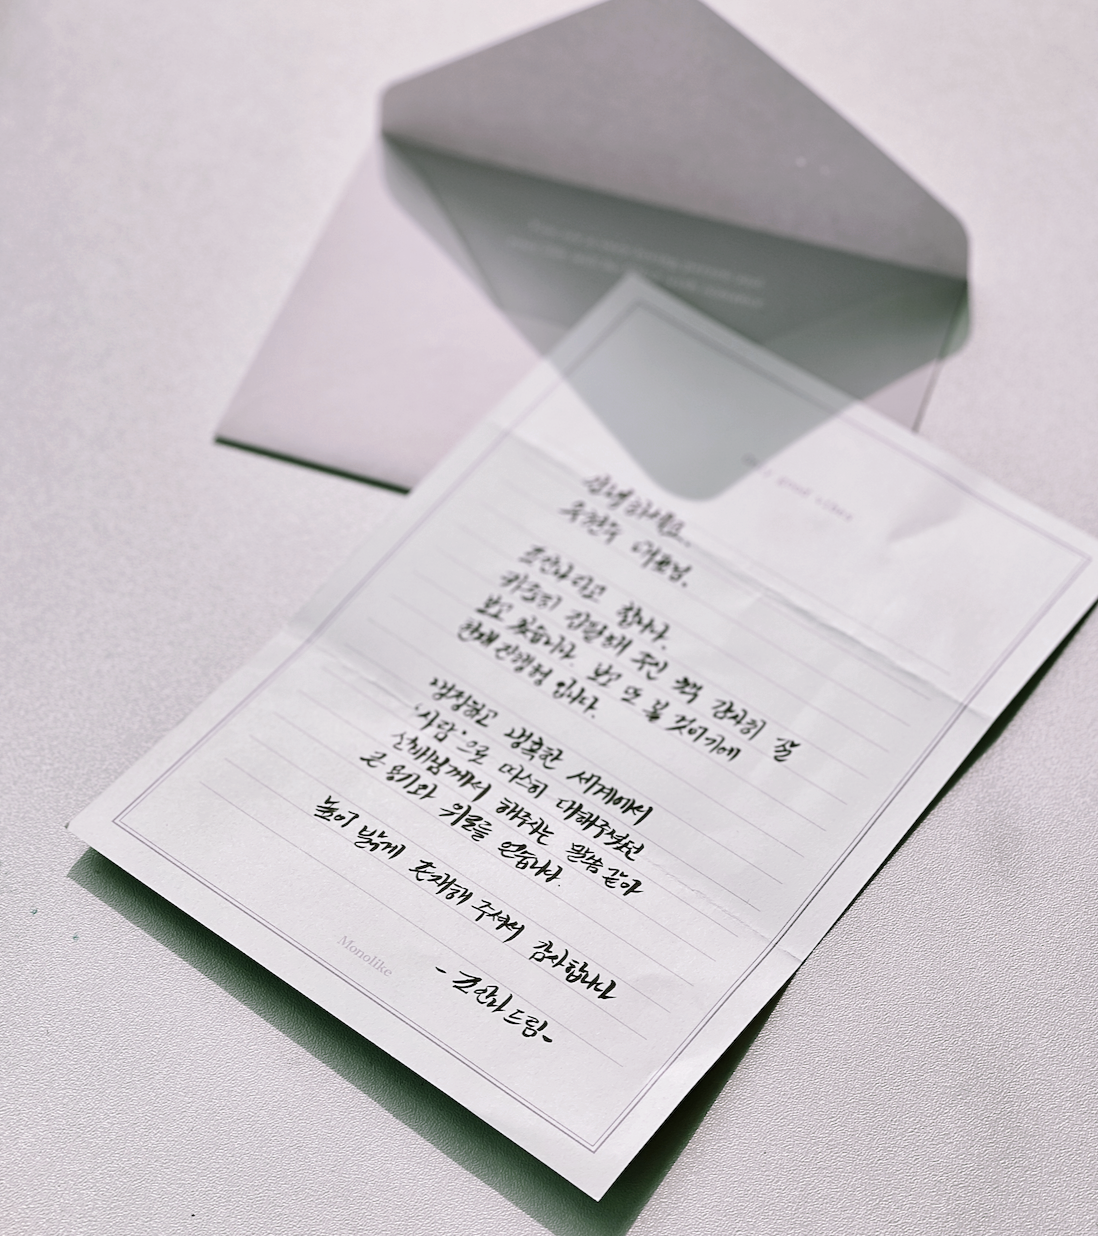 good vibes
안녕하세요.
대표님.
조안나라고 합니다.
귀중히 전달해 주신 책 감사히 잘
보고 있습니다. 보고 또 볼 것이기에
현재 진행형 입니다.
냉정하고 냉혹한 세계에서
'사람'으로 따스히 대해주셨던
선배님께서 해주시는 말씀 같아
큰 용기와 위로를 얻습니다.
높이 밝게 존재해 주셔서 감사합니다
- 조안나 드림-
Monolike